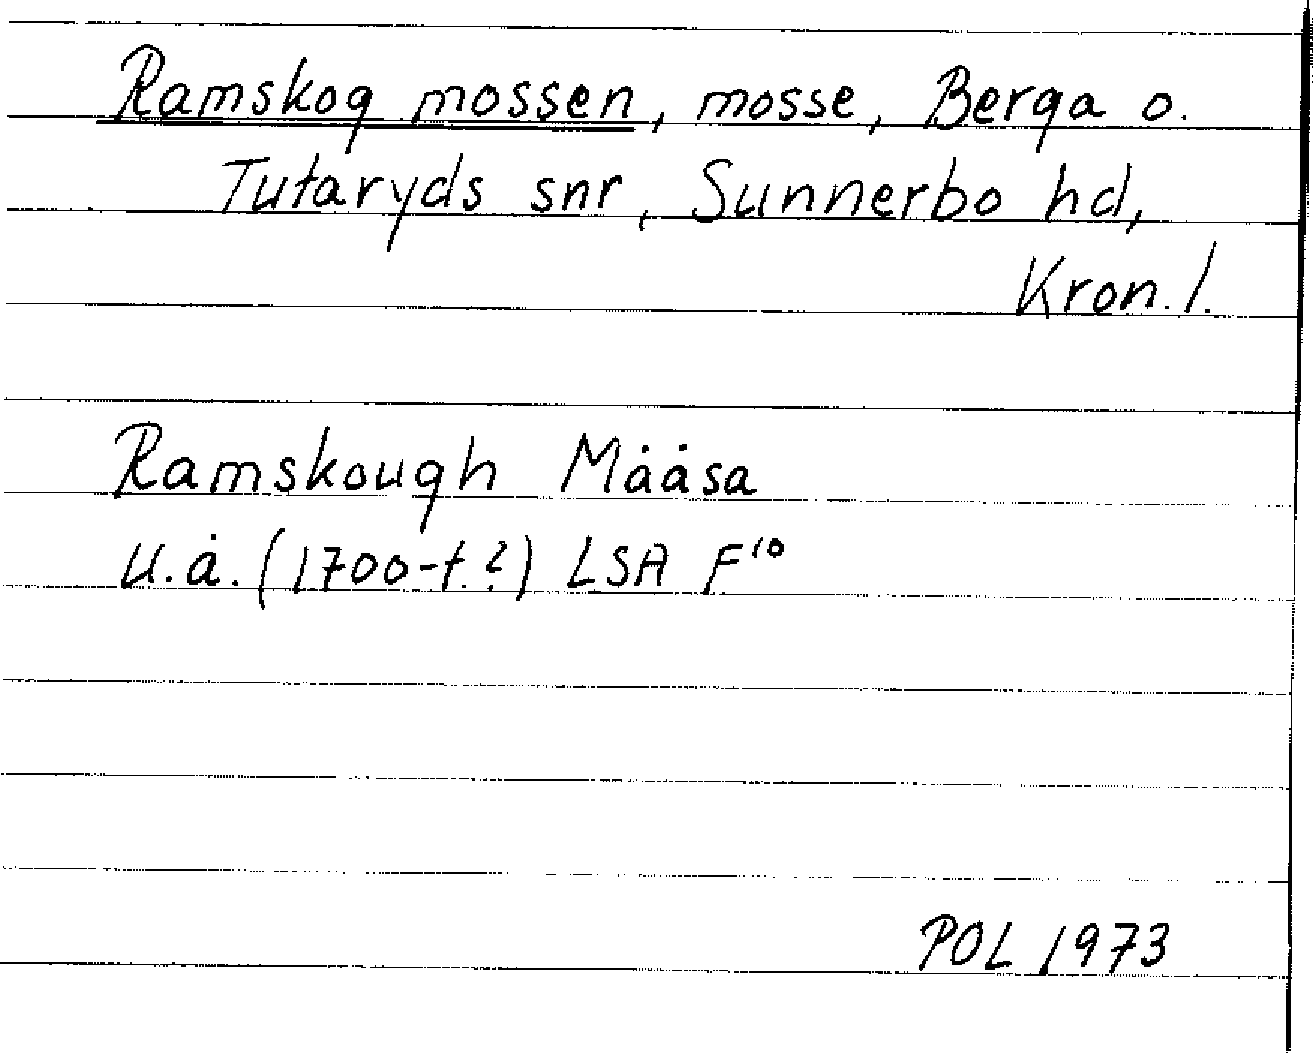 Ramskog mossen, mosse, Berga o.
Tutaryds snr, Sunnerbo hd,
Kron. l.
Ramskough Mååsa
U.å. (1700-t.?) LSA F¹⁰
POL 1973